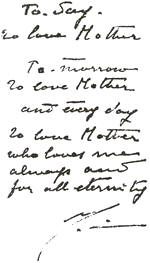 To. Day.
to love Mother
To-morrow
to love Mother
and every day
to love Mother
who loves me
always and
for all eternity